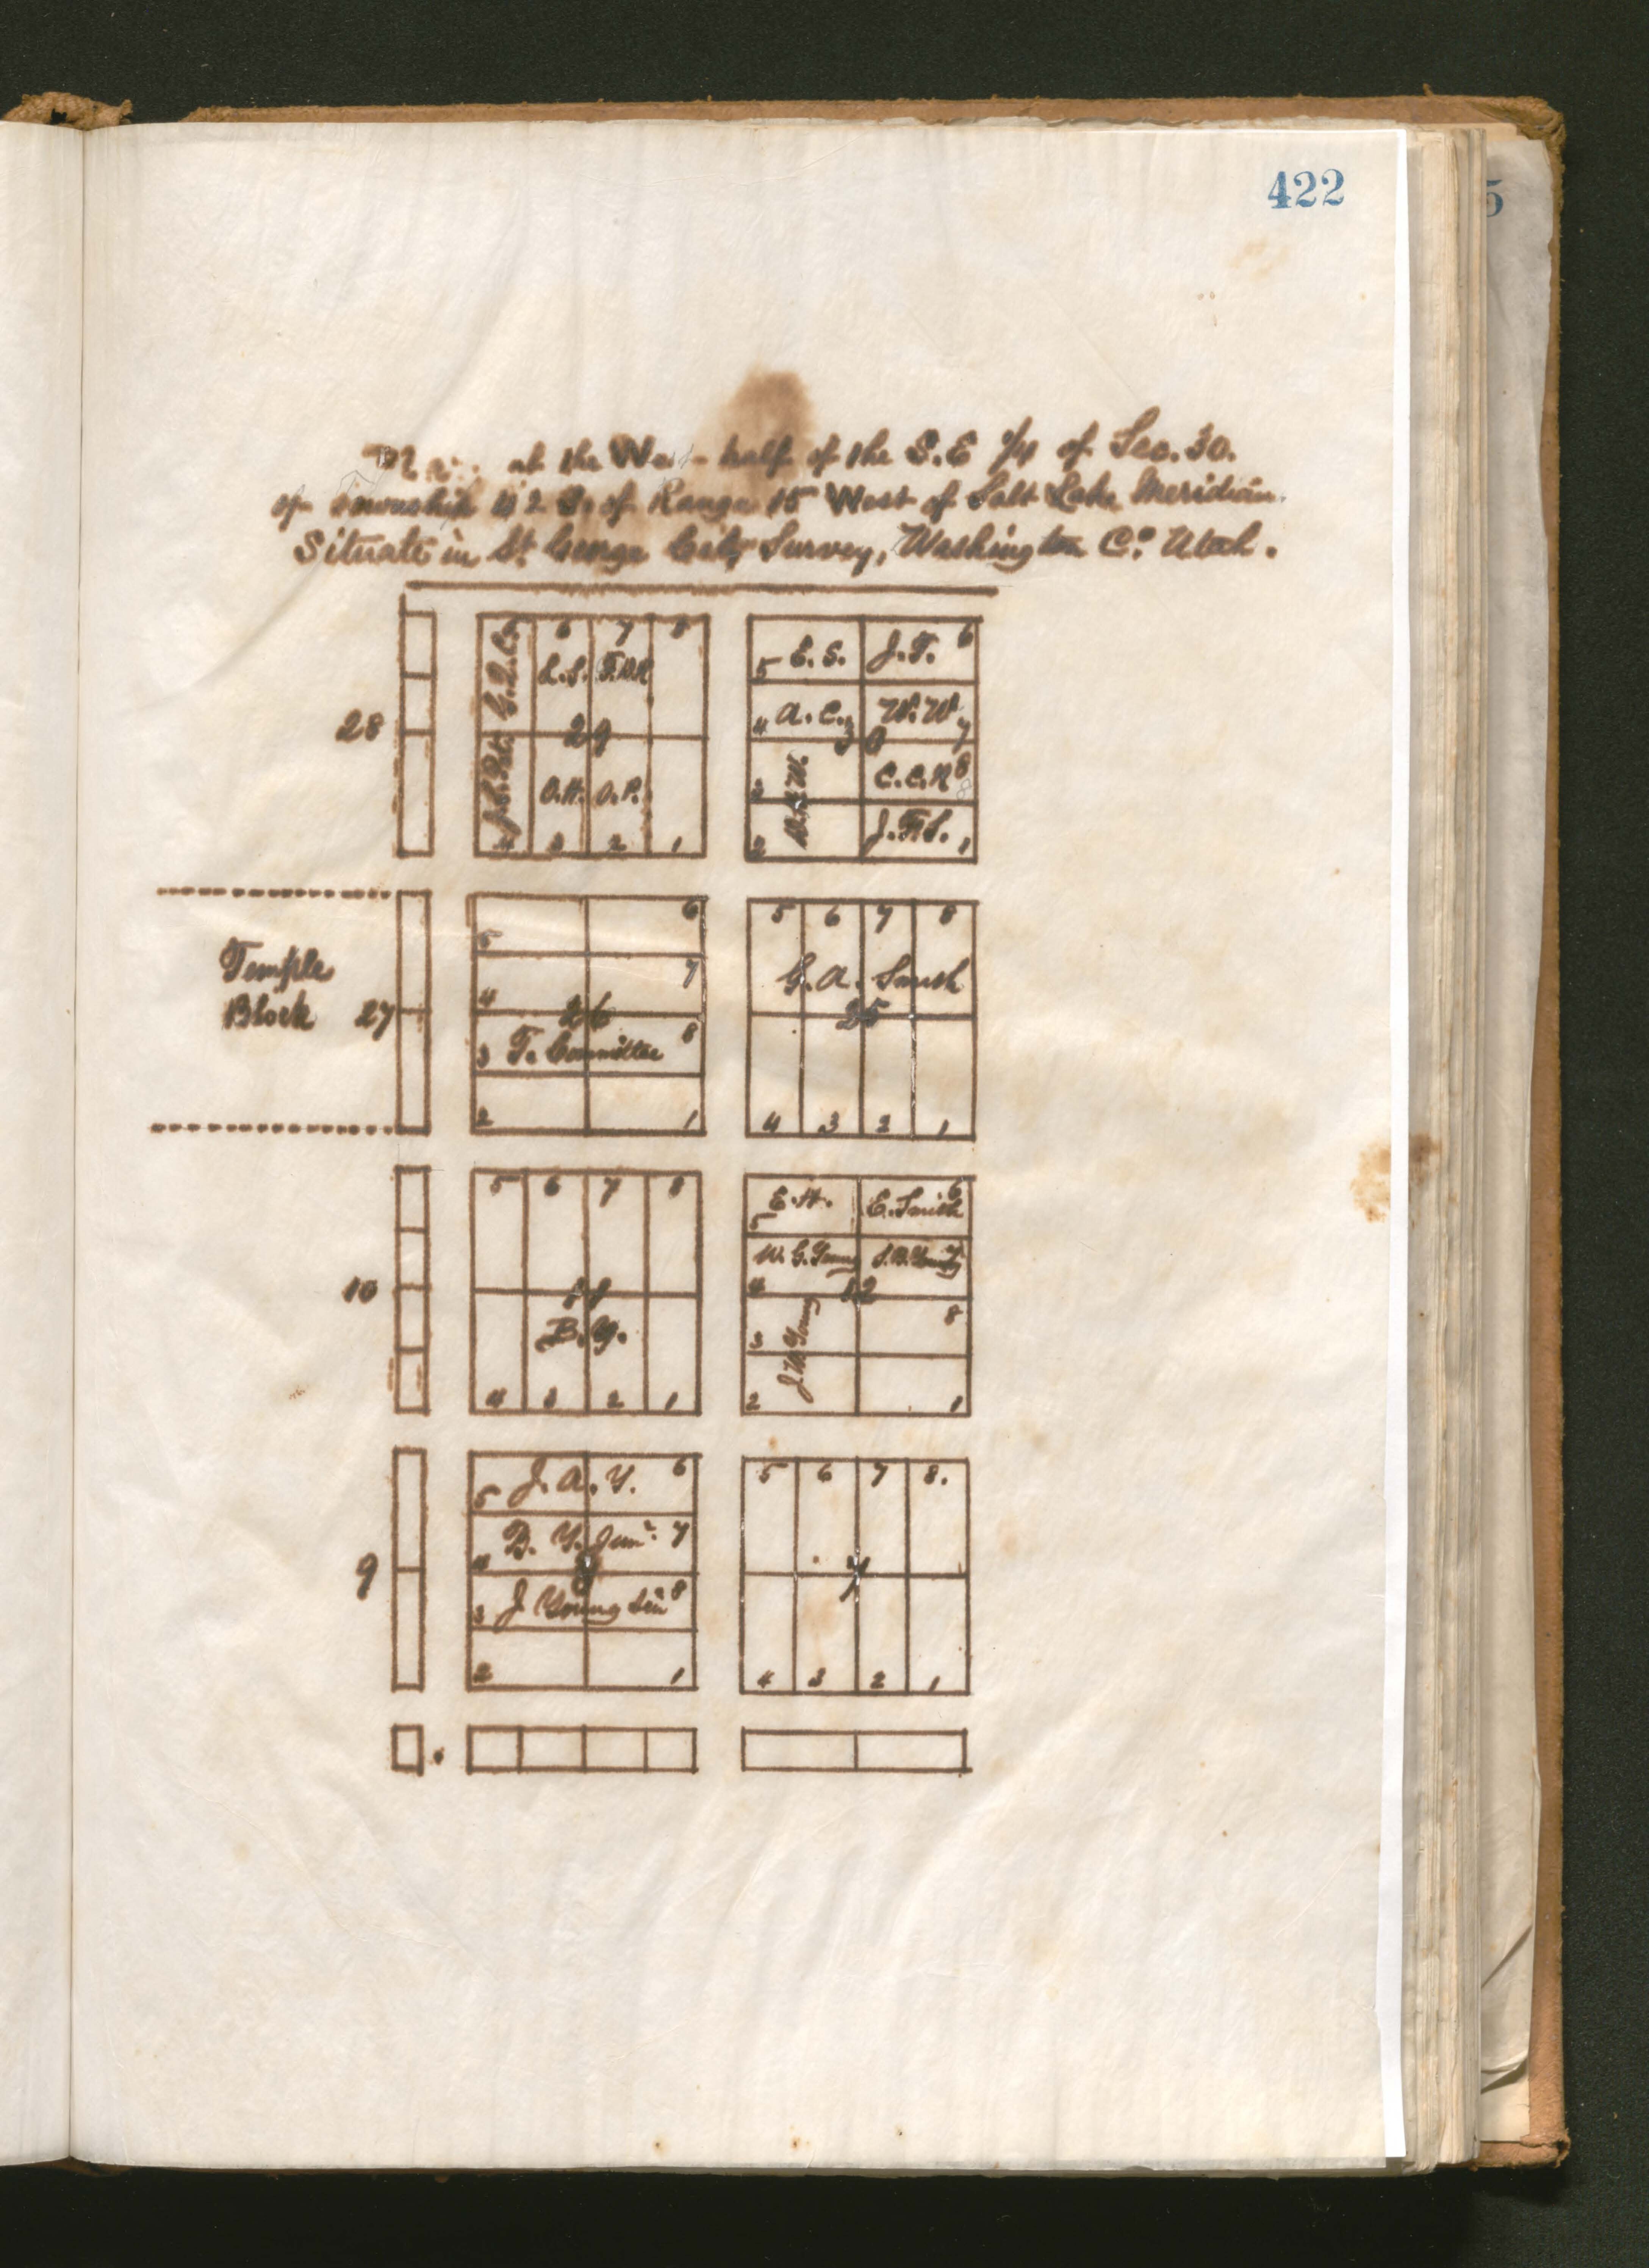 422
at the West half of the S.E 1/4 of Sec. 30.
of Township 42 S. of Range 15 West of Salt Lake Meridian.
Situate in St. George City Survey, Washington Co. Utah.
28
5 6 7 8
G.Q.C. L.S. F.D.R
29
O.H. O.P.
4 3 2 1
5 E. S. J.T. 6
4 A. C. W. W. 7
30
3 C.C.R 8
2 J.F.S. 1
Temple
Block 27
6
5
7
4
26
3 T. Committee 8
2 1
5 6 7 8
G. A. Smith
25
4 3 2 1
10
5 6 7 8
11
B. Y.
4 3 2 1
E. H. E. Smith 6
5
W. G. Young S. B. Young 7
4 12
3 J. W. Young 8
2 1
9
5 J. A. Y. 6
4 B. Y. Junr. 7
8
3 J Young Sen 8
2 1
5 6 7 8.
7
4 3 2 1